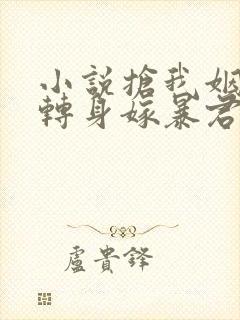 小説搶我姻
轉身嫁暴君
盧貴鋒